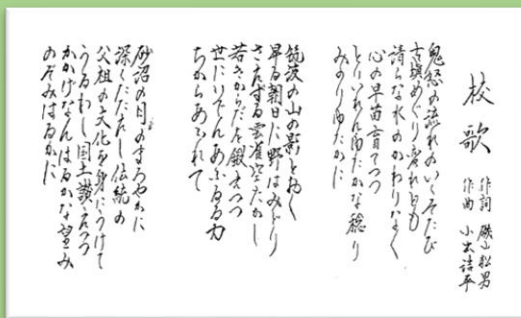 校歌
作詞
作曲 小出浩平
鬼怒の流れのいくそたび
めぐり
清らな水のかわりなく
心の早苗育てつつ
とりいれんゆたかな稔り
みのりゆたかに
筑波の山の影とおく
朝日に野はみどり
さえずる雲雀空たかし
若きからだを鍛えつつ
世にいでんあふるる力
ちからあふれて
砂沼の月のまろやかに
深くたたえし伝統の
父祖の文化を身につけて
うるわし国土讃えつつ
かかげなんはるかな望み
のぞみはるかに